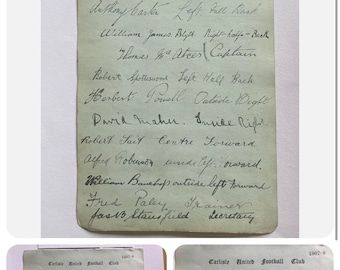 Anthony Carter Left Full Back
William James Blyth Right-half-Back
Thomas Mc Ateer (Captain
Robert Spottswood Left Half Back
Herbert Powell Outside Right
David Maher. Inside Right
Robert Tait Centre Forward
Alfred Robinson inside left forward.
William outside left forward
Fred Paley Trainer
Jas B. Stansfield Secretary
Carlisle United Football Club
Carlisle United Football Club